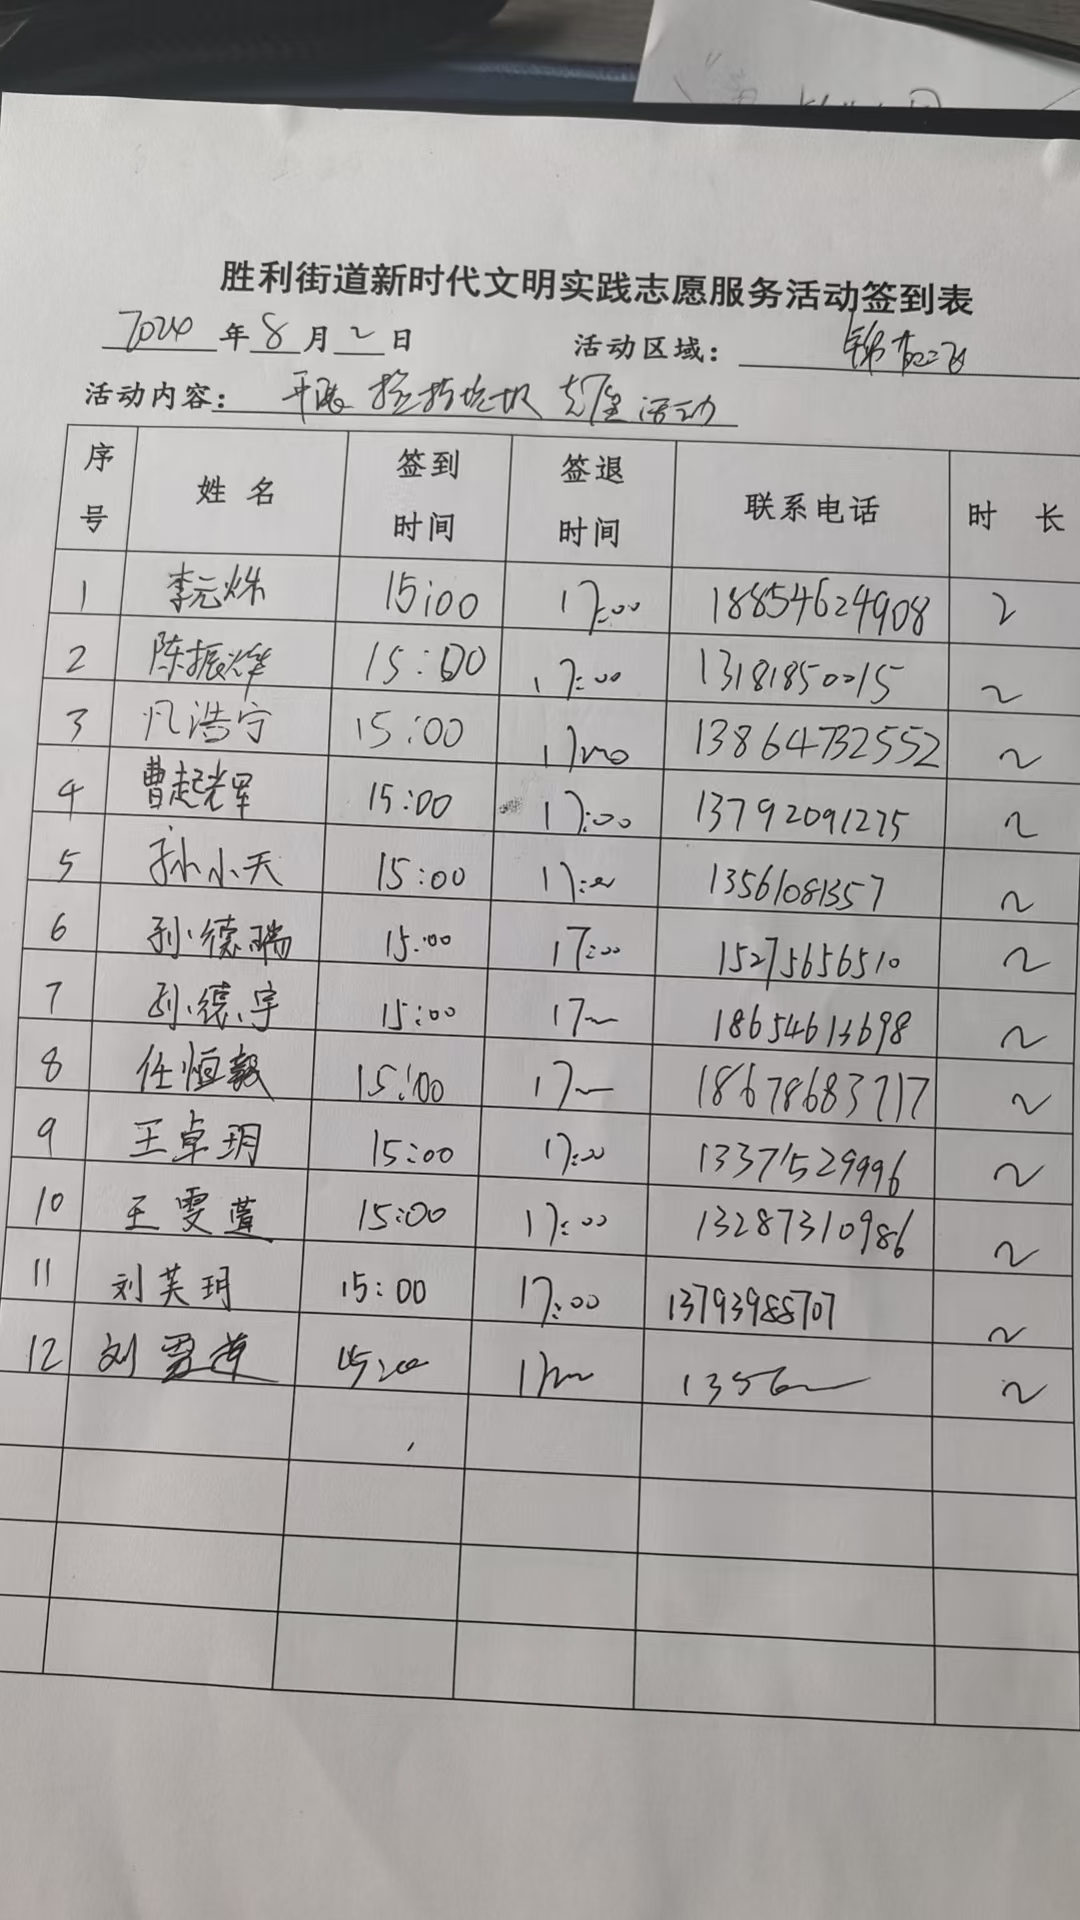 胜利街道新时代文明实践志愿服务活动签到表
2024年8月2日 活动区域：锦苑二
活动内容：开展 活动
序号 姓名 签到时间 签退时间 联系电话 时长
1 李元 15:00 17:00 18854624908 2
2 陈振烨 15:00 17:00 13181850015 2
3 凡浩宁 15:00 17:00 13864732552 2
4 曹起 15:00 17:00 13792091275 2
5 孙小天 15:00 17:00 13561081357 2
6 孙德瑞 15:00 17:00 15275656510 2
7 孙德宇 15:00 17 18654613698 2
8 任恒毅 15:00 17 18678683717 2
9 王卓玥 15:00 17:00 13371529996 2
10 王雯萱 15:00 17:00 13287310986 2
11 刘芙玥 15:00 17:00 13793988707 2
12 刘 15:00 17 1356 2